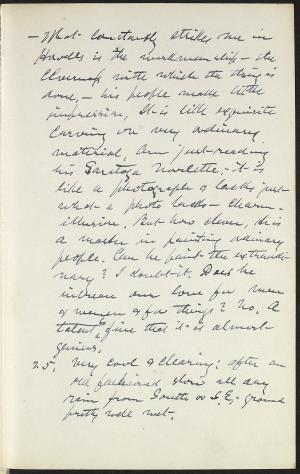 — What constantly strikes me in
Howells is the workmanship — the
cleverness with which the thing is
done, — his people make little
impression, It is like exquisite
carving on very ordinary
material. Am just reading
his Saratoga Novelette, — it is
like a photograph & lacks just
what a photo lacks — charm —
illusion. But how clever, he is
a master in painting ordinary
people. Can he paint the extraordi-
nary? I doubt it. Does he
increase our love for men
& women & for things? No. A
talent so fine that it is almost
genius.
25. Very cool & clearing; after an
old fashioned slow all day
rain from South or S.E.; ground
pretty well wet.